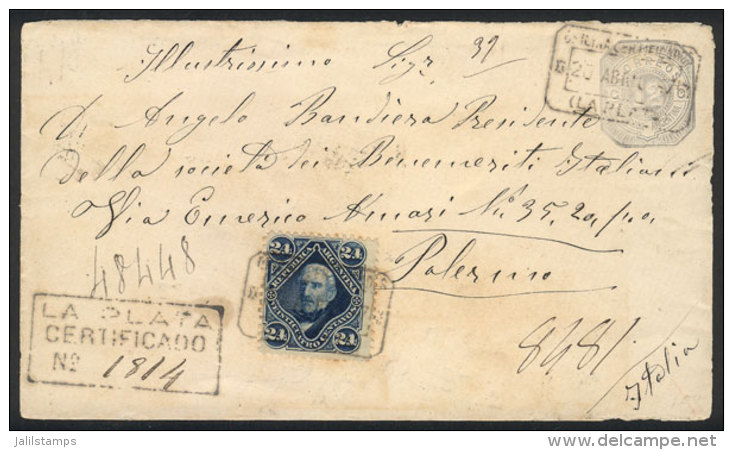 Illustrissimo Sigr 39
D. Angelo Bandiera Presidente
della società dei Benemeriti Italiani
Via Emerico Amari No. 35, 2o, p.o
Palermo
Italia
48448
8481
LA PLATA
CERTIFICADO
No 1814
ABR
(LA PLATA)
CORREOS
24 24
REPUBLICA ARGENTINA
VEINTICUATRO CENTAVOS
24 24
jalilstamps
http://www.delcampe.net